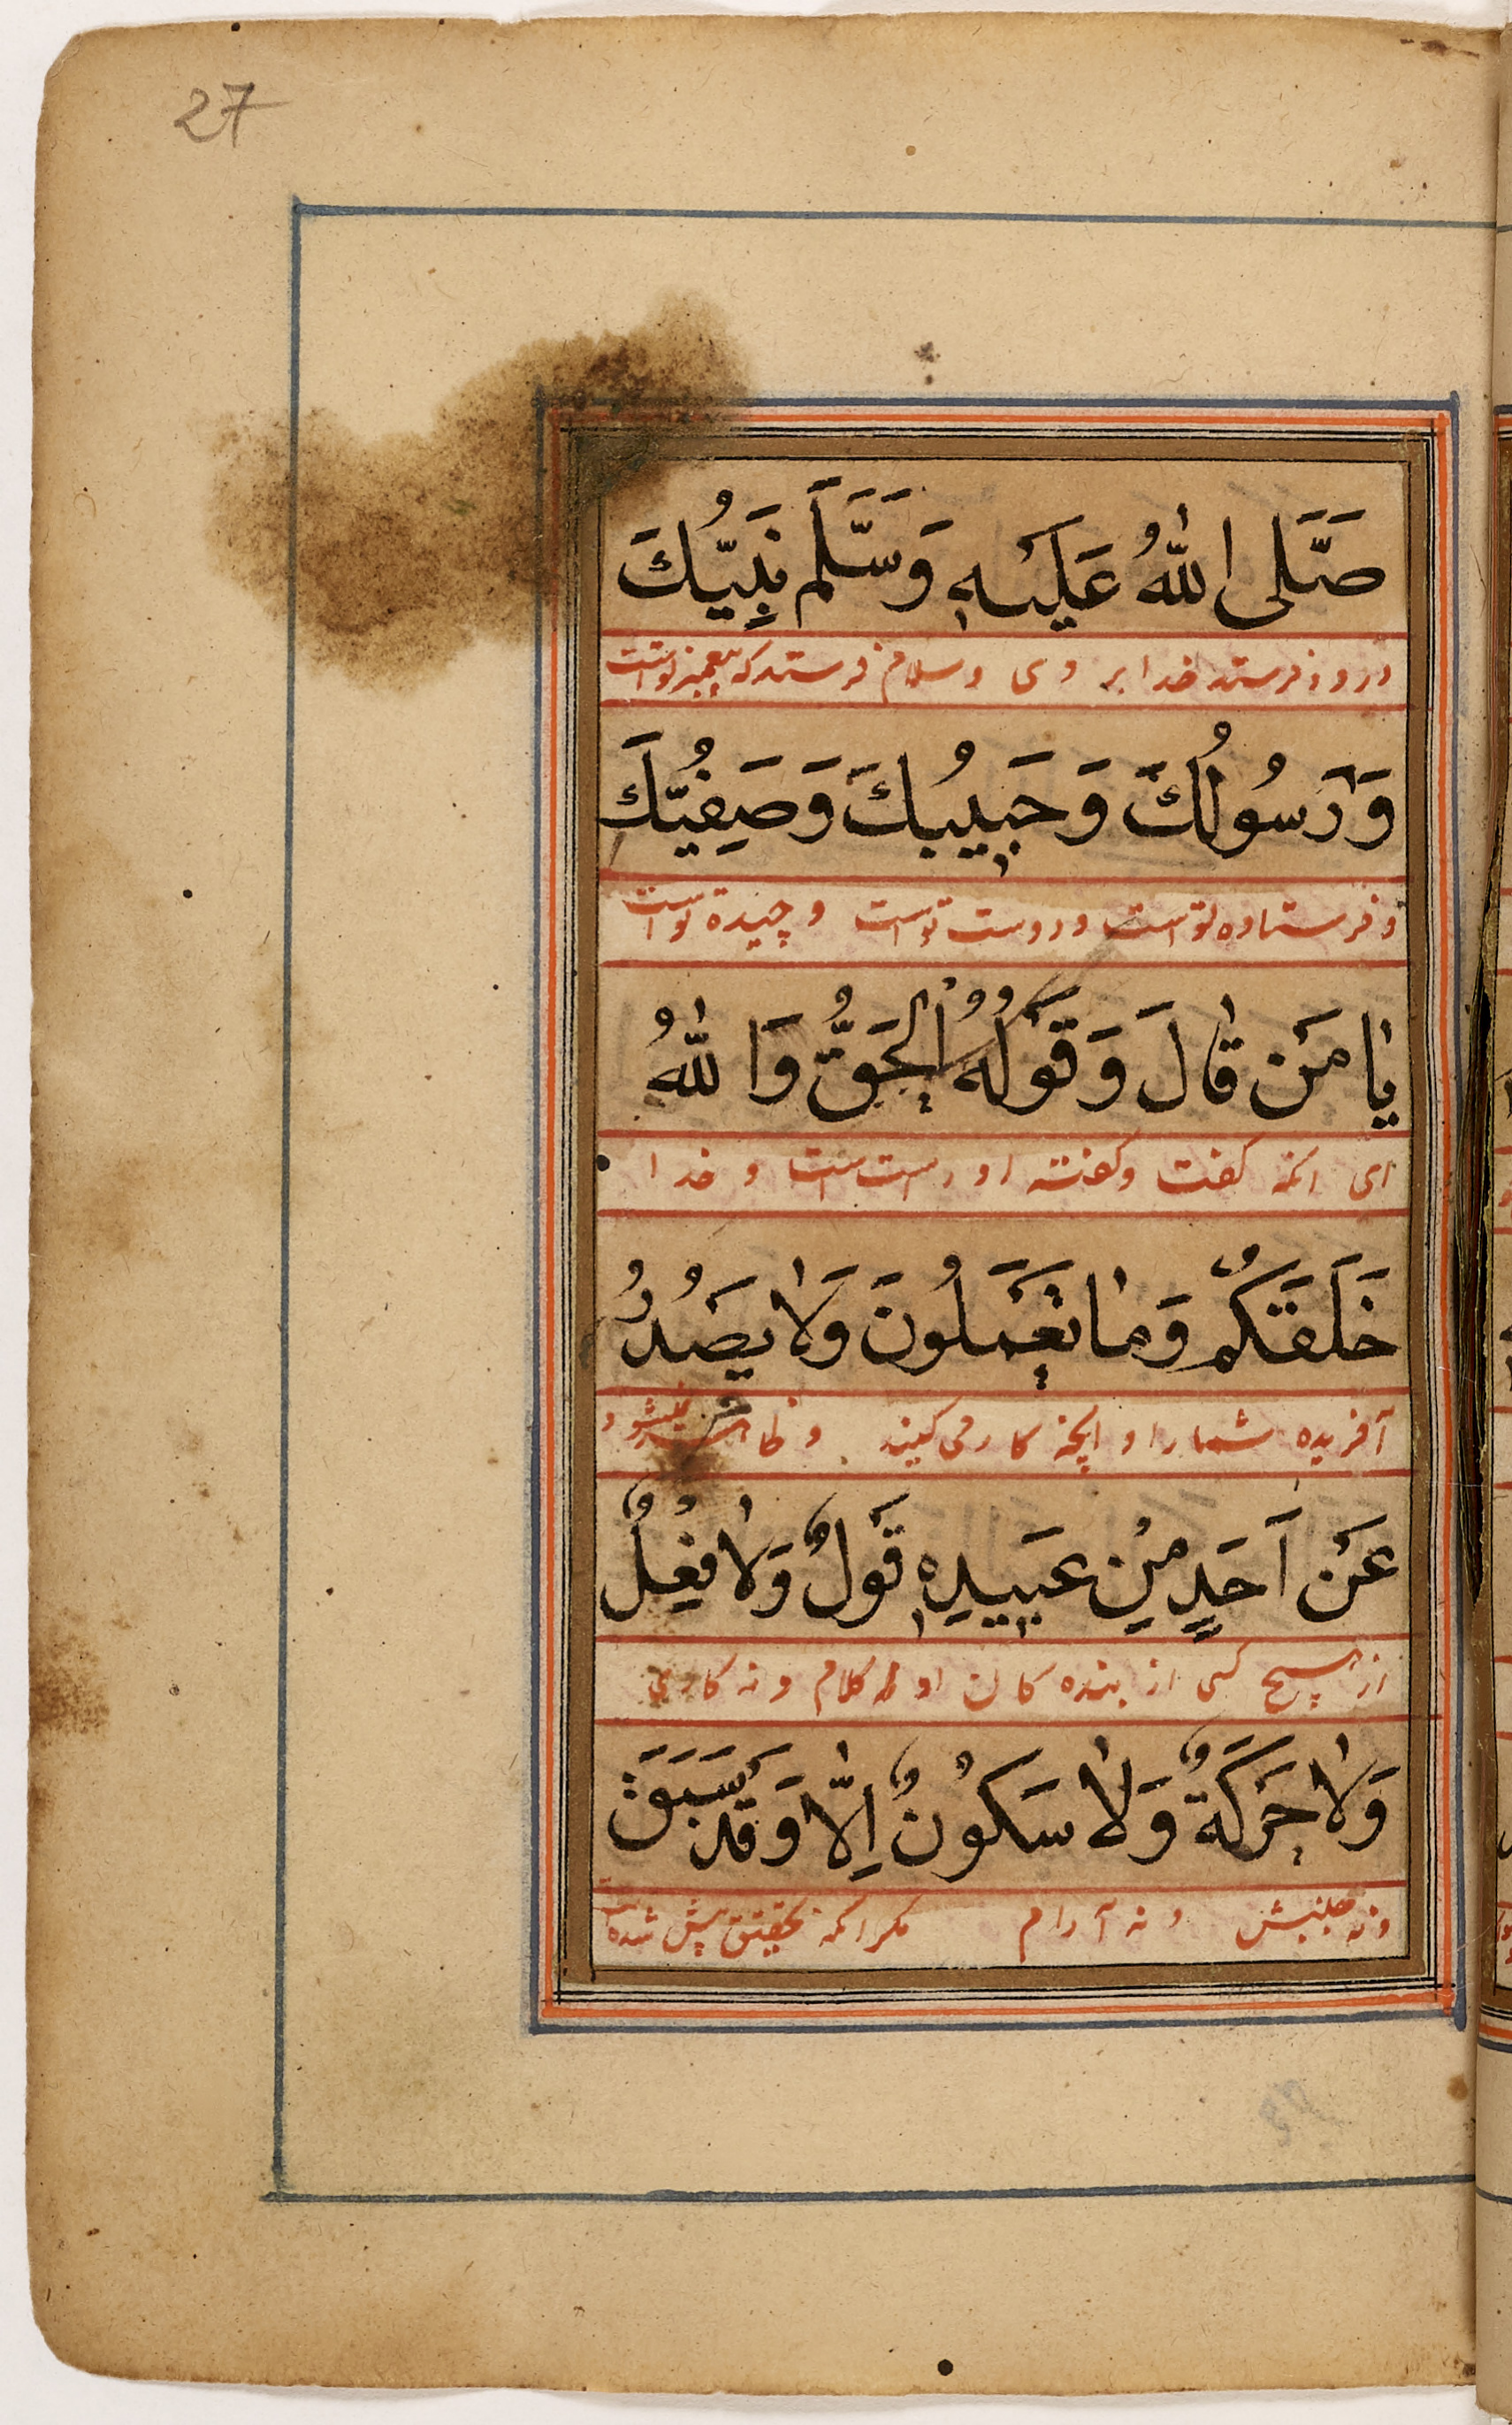 27
صَلَّى اللهُ عَلَيْهِ وَسَلَّمَ نَبِيُّكَ
درود فرستد خدا بر وی و سلام فرستد که پیغمبر تو است
وَرَسُولُكَ وَحَبِيبُكَ وَصَفِيُّكَ
و فرستاده تو است و دوست تو است و چیده تو است
يَا مَنْ قَالَ وَقَوْلُهُ الْحَقُّ وَاللهُ
ای آنکه گفت و گفته او راست است و خدا
خَلَقَكُمْ وَمَا تَعْمَلُونَ وَلَا يَصْدُرُ
آفریده شما را و آنچه کار می کنید و نمیشود
عَنْ اَحَدٍ مِنْ عَبِيدِهِ قَوْلٌ وَلَا فِعْلٌ
از هیچ کسی از بنده کان او نه کلام و نه کاری
وَلَا حَرَكَةٌ وَلَا سَكُونٌ اِلَّا وَقَدْ سَبَقَ
و نه جنبش و نه آرام مگر آنکه بتحقیق پیش شده است